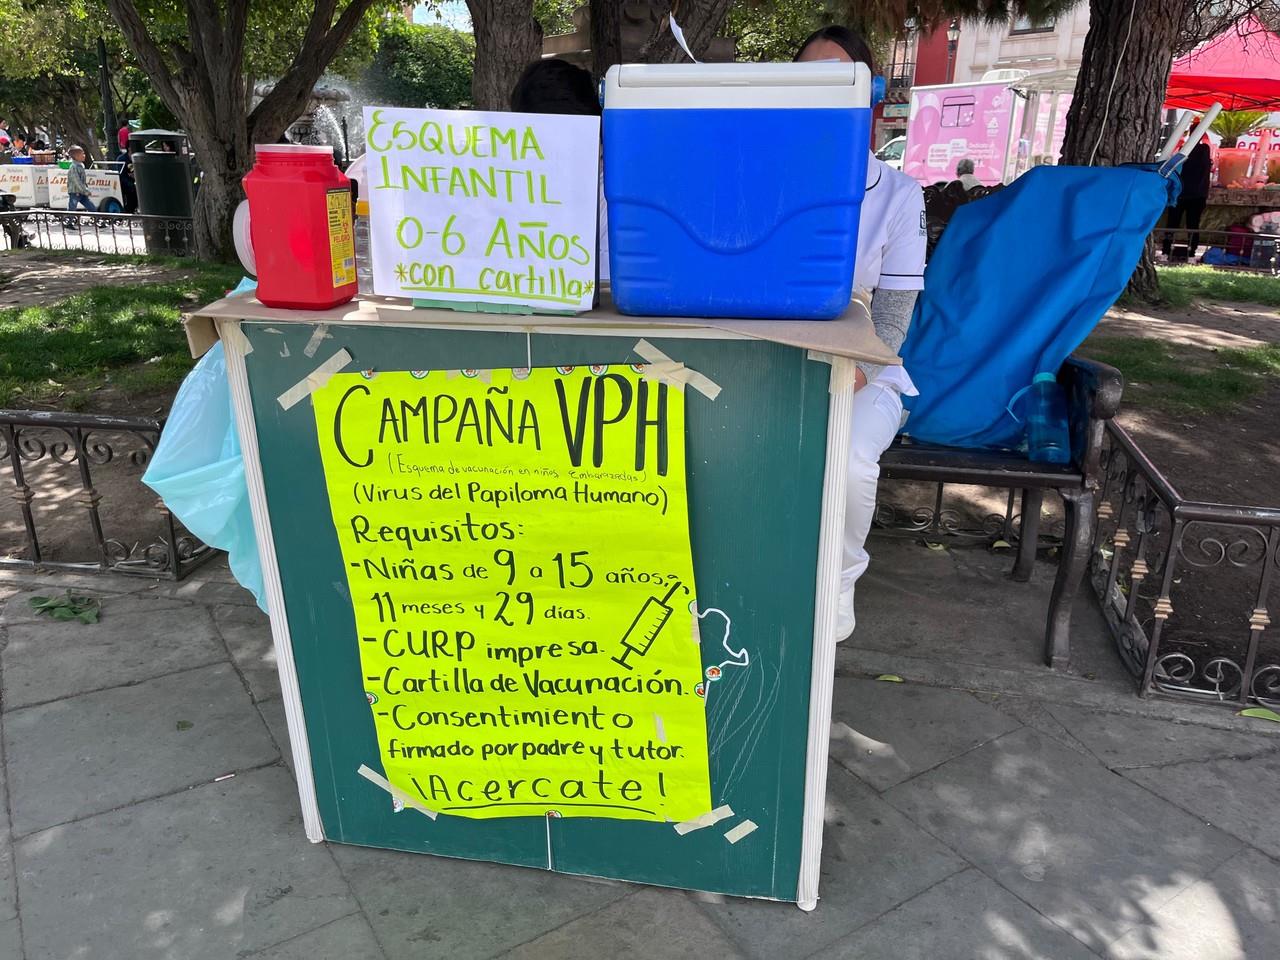 ESQUEMA
INFANTIL
0-6 AÑOS
*con cartilla*
PELIGRO
CAMPAÑA VPH
(Esquema de vacunación en niños embarazadas)
(Virus del Papiloma Humano)
Requisitos:
-Niñas de 9 a 15 años,
11 meses y 29 días.
-CURP impresa.
-Cartilla de Vacunación.
-Consentimiento
firmado por padre y tutor.
¡Acercate!